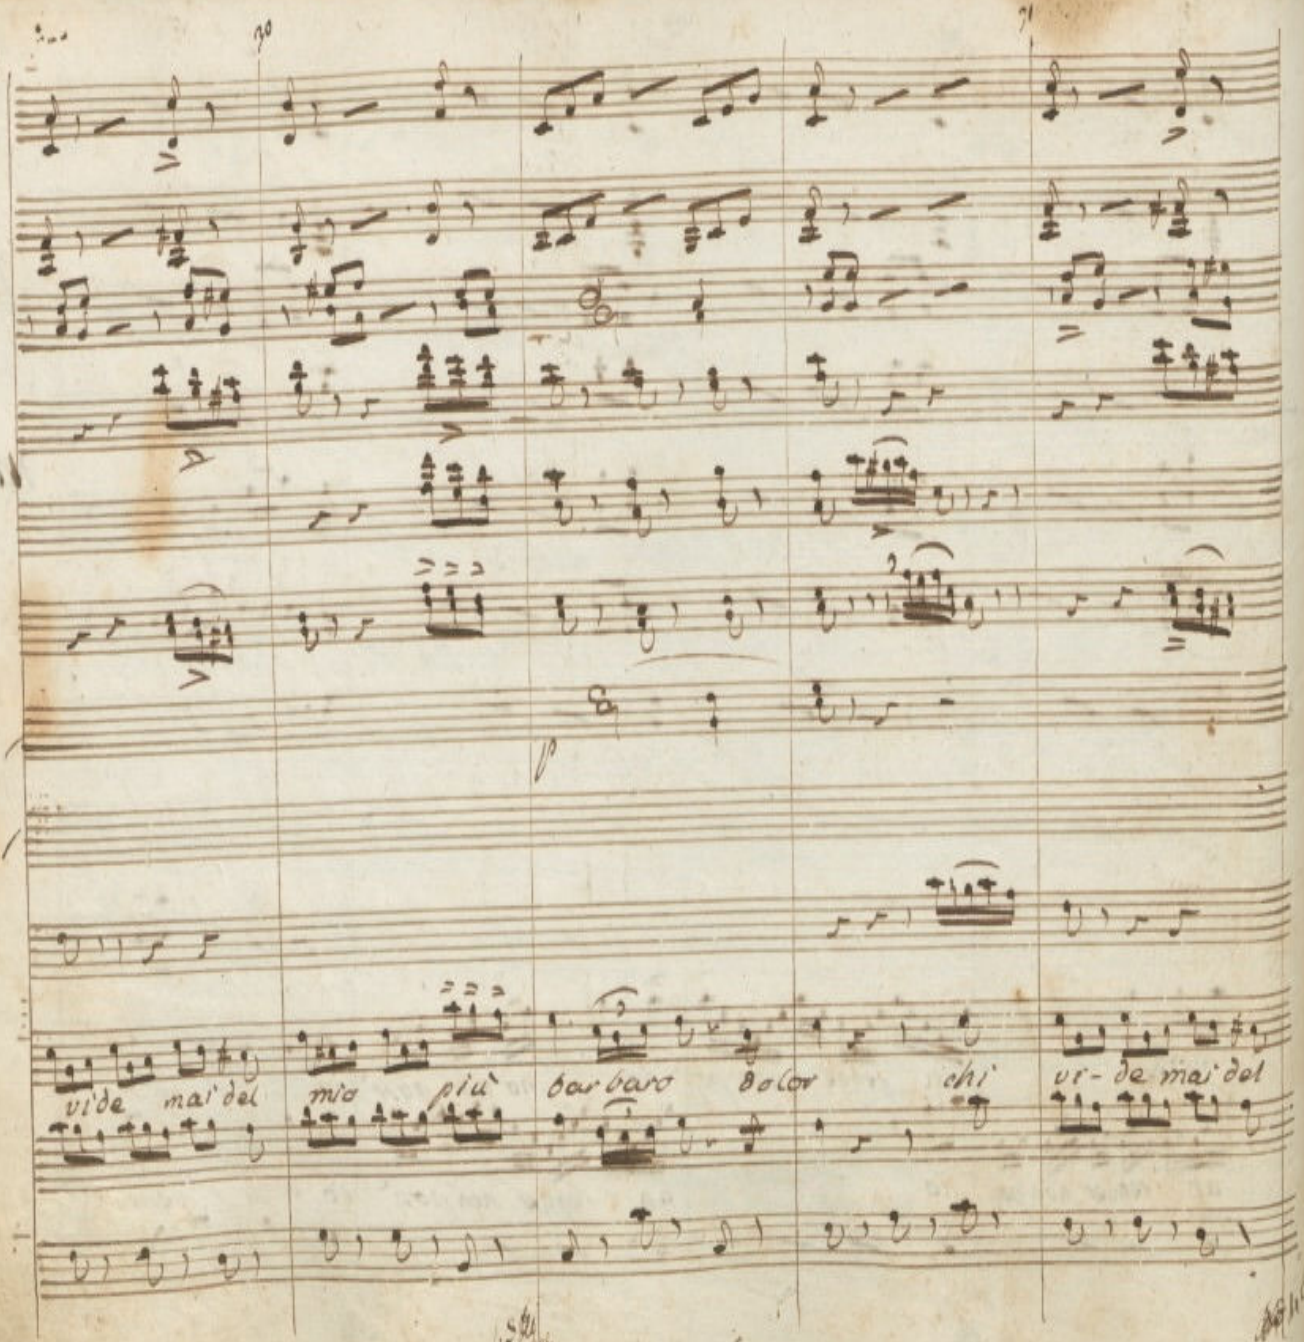 30 31
p
vide mai del mio più barbaro dolor chi vi-de mai del